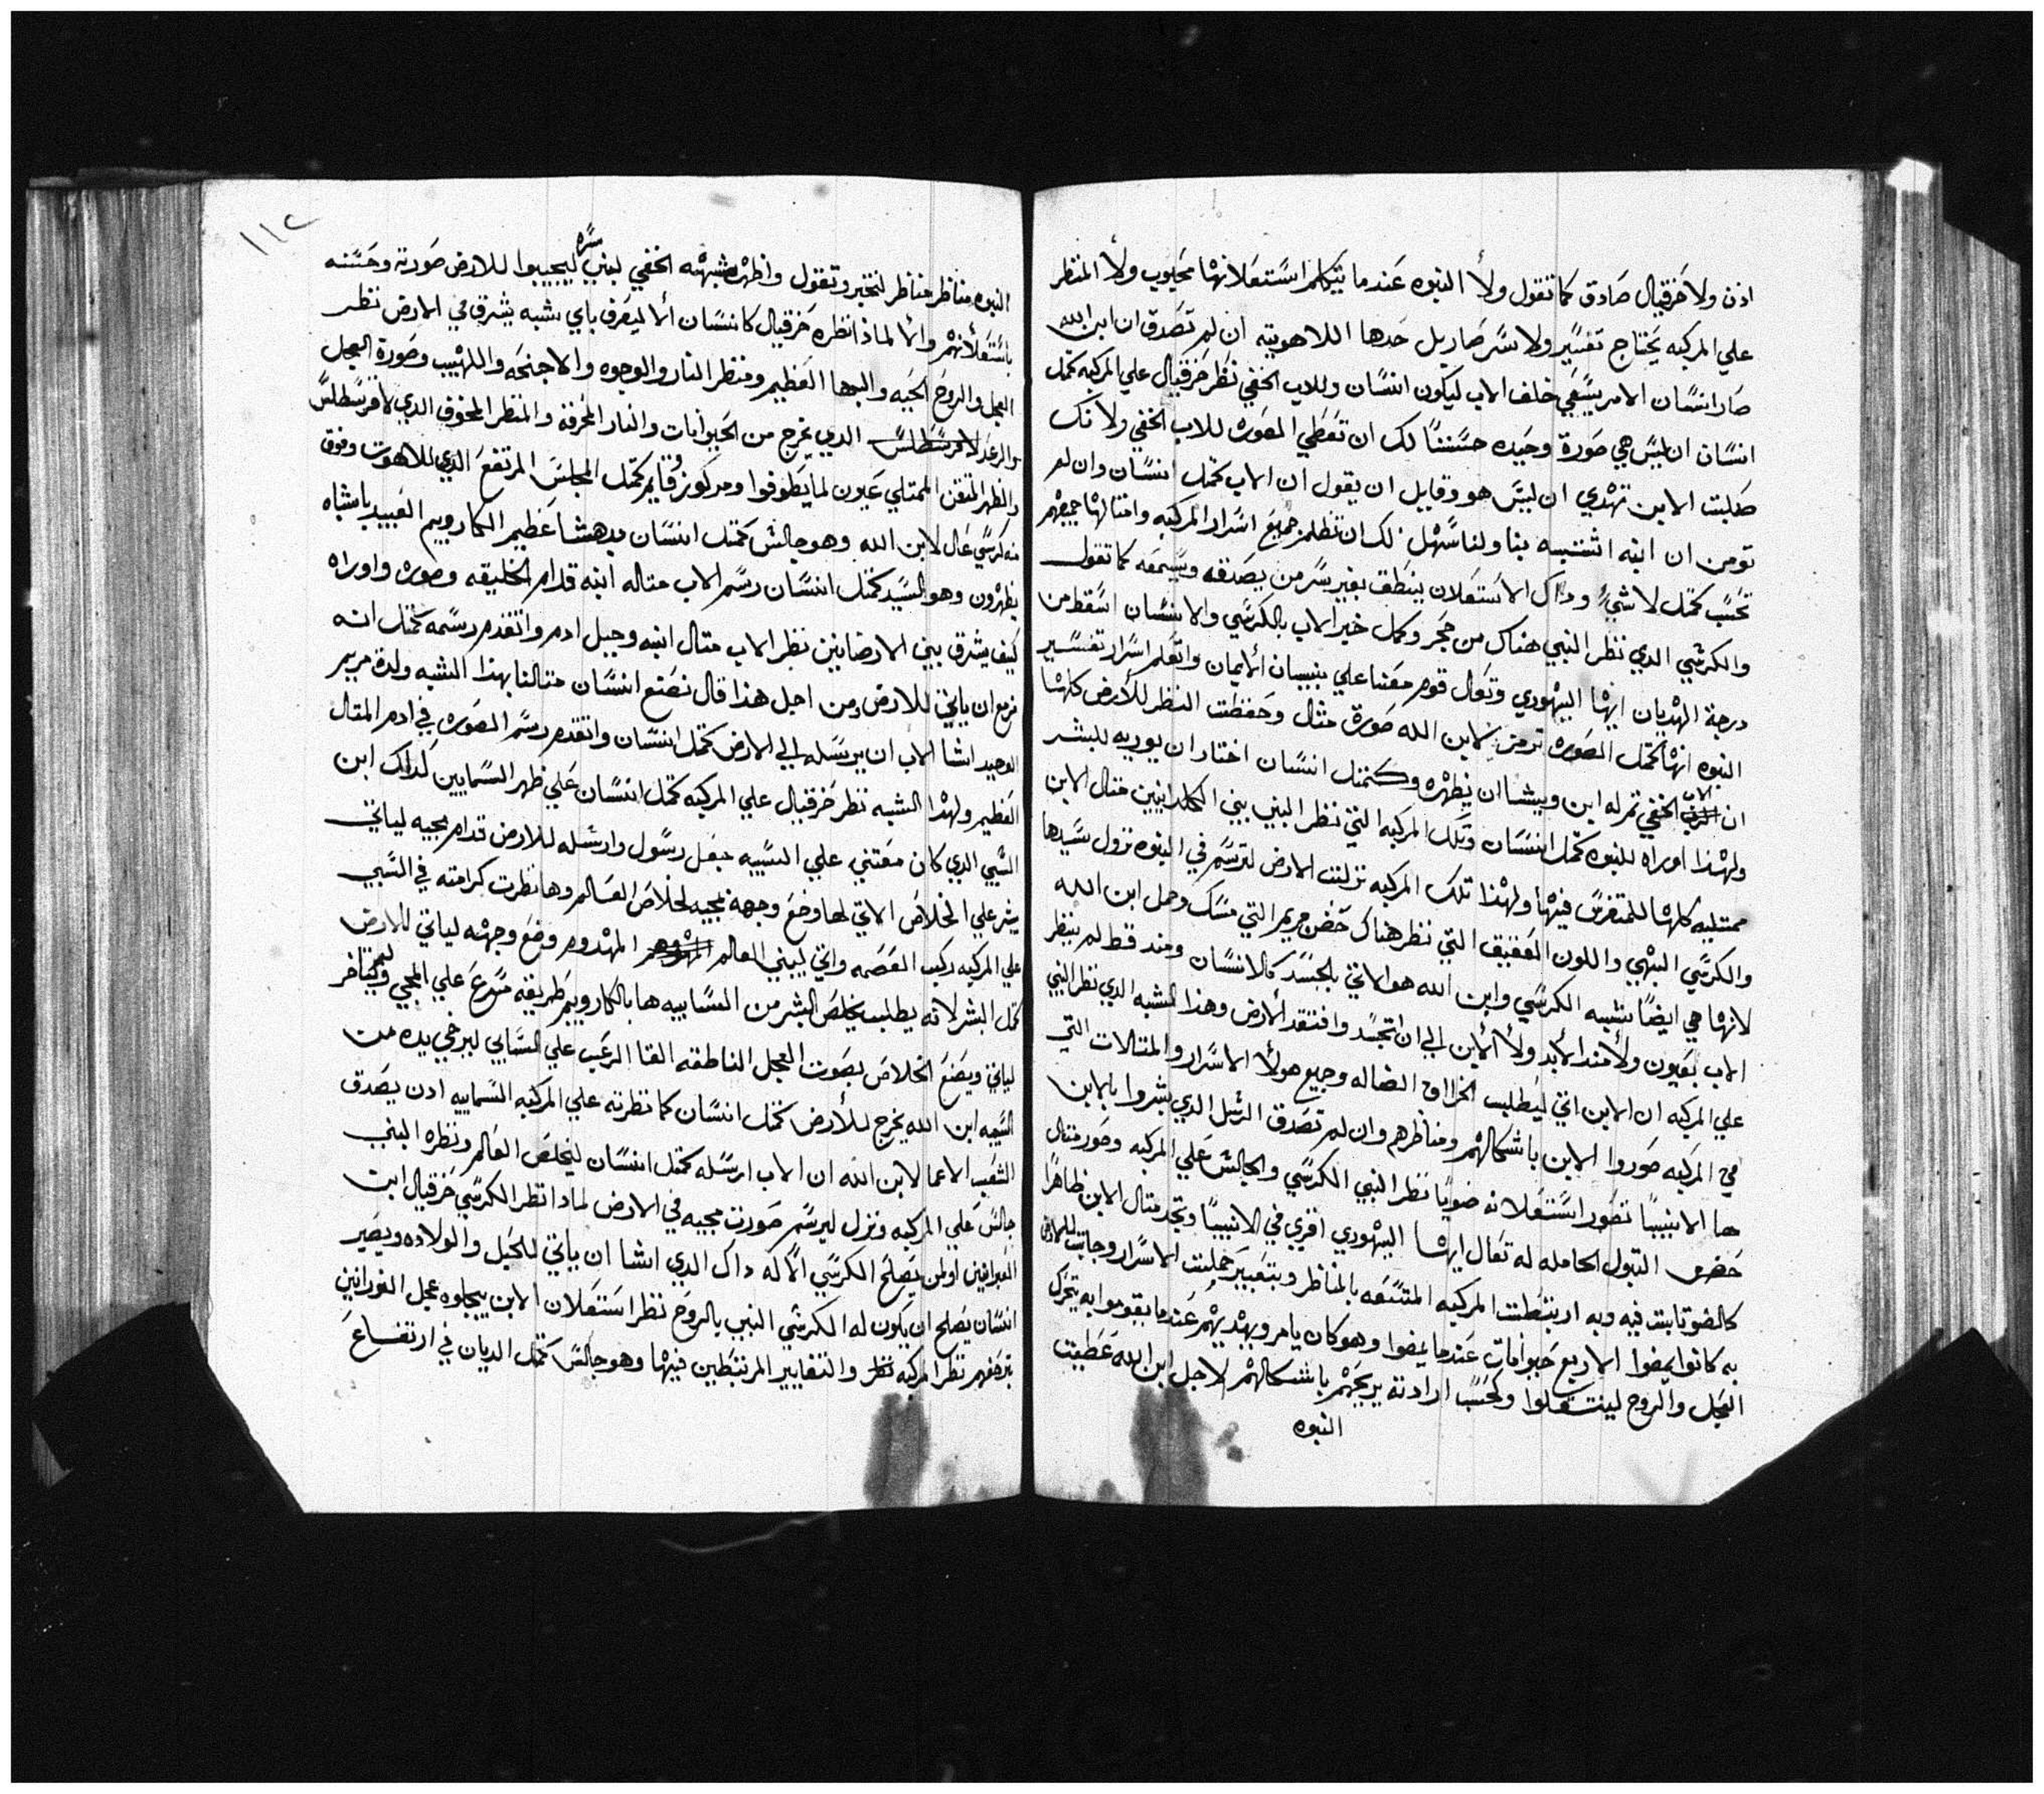 ادن ولا حزقيال صادق كما تقول ولا النبوه عندما تتكلم استعلانها محبوب ولا المنظر
علي المركبه يحتاج تفسير ولا سر صار بل حدها اللاهويته ان لم تصدق ان ابن الله
صار انسان الامر يسقي خلف الاب ليكون انسان وللاب الخفي نظر حزقيال علي المركبه كمتل
انسان ان ليس هي صورة وحيده حسننا لك ان تعطي الصوره للاب الخفي ولا تك
صلبت الابن تهدي ان ليس هو وقايل ان يقول ان الاب كمتل انسان وان لم
تومن ان ابنه اتشبه بنا ولنا سهل لك ان تظلم جميع اسرار المركبه وامتالها جميعهم
تحسب كمتل لا شي وداك الاستعلان ينطق بغير سر من يصدقه ويسمعه كما تقول
والكرسي الدي نظر النبي هناك من حجر وكمل خير الاب بالكرسي والانسان اسقط من
درجة الهديان ايها اليهودي وتعال قوم معنا علي بنيان الايمان واتعلم اسرار تفسير
النبوه انها كمتل الصوره ترمز لابن الله صورة متال وحفظت النظر للارض كلها
ان الاب الخفي تم له ابن ويشا ان يظهره وكمتل انسان اختار ان يوريه للبشر
ولهذا اوراه للنبوه كمتل انسان وتلك المركبه التي نظر النبي بيني الكلدانيين متال الابن
ممتليه كلها للمتفرس فيها ولهذا تلك المركبه نزلت الارض لترسم في النبوه نزول سيدها
والكرسي البهي واللون العقيق التي نظر هناك حضن مريم التي مسك وحمل ابن الله
لانها هي ايضا شبيه الكرسي وابن الله هو الاتي بالجسد كالانسان ومند قط لم ينظر
الاب بعيون ولا مند الابد ولا الابن الي ان اتجسد وافتقد الارض وهذا الشبه الدي نظر النبي
علي المركبه ان الابن اتي ليطلب الخراف الضاله وجميع هولا الاسرار والمتالات التي
في المركبه صوروا الابن باشكالهم ومناظرهم وان لم تصدق الرسل الدي بشروا بالابن
ها الانبيا تصور استعلانه ضويا نظر النبي الكرسي والجالس علي المركبه وصور متال
حضن البتول الحامله له تعال ايها اليهودي اقري في الانبيا وتجد متال الابن ظاهرا
كالضو تابت فيه وبه ارتبطت المركبه المتسعه بالمناظر وبتعبير حملت الاسرار وجابت للارض
به كانوا يمضوا الاربع حيوانات عندما يمضوا وهو كان يامر ويهديهم عندما يقوموا به يتحرك
العجل والروح لينتقلوا وكحسب ارادته يريحهم باشكالهم لاجل ابن الله غطيت
النبوه
١١٢
النبوه مناظر مناظر لتخبر وتقول واظهر شبهه الخفي لبني سره ليجيبوا للارض صورته وحسنه
باستعلانهم والا لماذا نظره حزقيال كانسان الا ليعرف باي شبه يشرق في الارض نظر
العجل والروح الحيه والبها العظيم ومنظر النار والوجوه والاجنحه واللهيب وصورة العجل
والرعد الدي يخرج من الحيوانات والنار المحرقه والمنظر المخوف الدي لا فر سطلس
والظهر المتقن الممتلي عيون لما يطوفوا ومركوز وقايم كمتل المجلس المرتفع الدي للاهوت وفوق
منه كرسي عال لابن الله وهو جالس كمتل انسان مدهشا عظيم الكاروبيم العبيد باشباه
يظهرون وهو السيد كمتل انسان رسم الاب متاله ابنه قدام الخليقه وصوره واوراه
كيف يشرق بيني الارضانيين نظر الاب متال ابنه وجبل ادم واتقدم رسمه كمتل انه
مزمع ان ياتي للارض ومن اجل هذا قال نصنع انسان متالنا بهذا الشبه ولدة مريم
الوحيد اشا الاب ان يرسله الي الارض كمتل انسان واتقدم رسم الصوره في ادم المتال
العظيم ولهذا الشبه نظر حزقيال علي المركبه كمتل انسان علي ظهر السمايين كدالك ابن
السبي الدي كان معتني علي السبيه جعل رسول وارسله للارض قدام مجيه لياتي
يبشر علي الخلاص الاتي لها وضع وجهه لمجيه لخلاص العالم وها نظرت كرامته في السبي
علي المركبه ركب العصمه واتي ليبني العالم المهدوم وضع وجهه لياتي للارض
كمتل البشر لانه يطلب يخلص البشر من السابيه ها بالكاروبيم طريقه مسرع علي المجي ولم يتاخر
لياتي ويصنع الخلاص بصوت العجل الناطقه القا الرعب علي السابي ليرخي يده من
السبيه ابن الله يخرج للارض كمتل انسان كما نظرته علي المركبه السماييه ادن يصدق
الشعب الاعما لابن الله ان الاب ارسله كمتل انسان ليخلص العالم ونظره النبي
جالس علي المركبه ونزل ليرسم صورت مجيه في الارض لمادا نظر الكرسي حزقيال ابن
العبرانيين اولمن يصلح الكرسي الا له داك الدي اشا ان ياتي للحبل والولاده ويصير
انسان يصلح ان يكون له الكرسي النبي بالروح نظر استعلان الابن يبجلوه عجل النورانيين
بترجفهم نظر المركبه والتغايير المرتبطين فيها وهو جالس كمتل الديان في ارتفاع